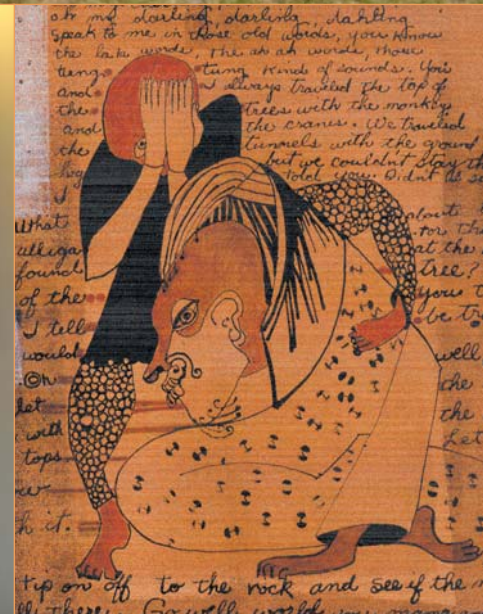 oh my darling, darling, dahling
speak to me in those old words, you know
the lak words, the ah ah words, those
tieng tung kind of sounds. You
and I always traveled the top of
the trees with the monkey
and the cranes. We traveled
the tunnels with the ground
hog but we couldn't stay th
I told you. Didn't
What about
alliga for th
found at the
of the tree?
I tell you t
would be tr
well
let the
with the
tops Let
w
h it.
tip on off to the rock and see if the
ll there. Go well